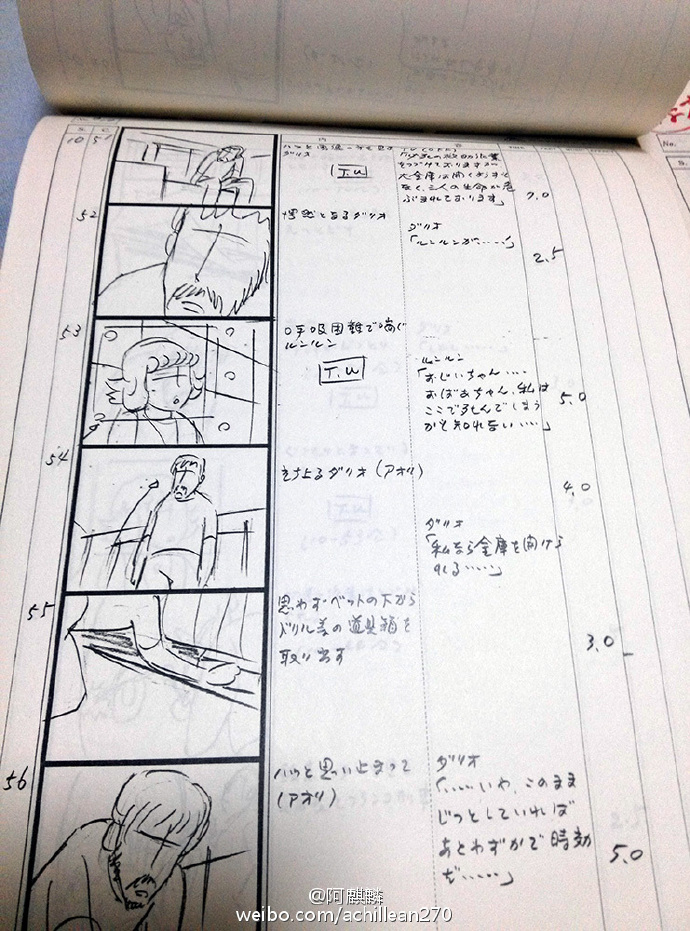 S. C
10 51
ハッと画面を見る
ダリオ
T.U
つづけておりますが
大金庫は開くようすも
なく、三人の生命が危
ぶまれております」
7.0
52
愕然となるダリオ
ダリオ
「ルンルンが……」
2.5
53
呼吸困難で喘ぐ
ルンルン
T.U
ルンルン
「おじいちゃん……
おばあちゃん、私は
ここで死んでしまう
かも知れない……」
5.0
54
立上るダリオ(アオリ)
ダリオ
「私なら金庫を開けら
れる……」
4.0
55
思わず、ベットの下から
ドリル等の道具箱を
取り出す
3.0
56
ハッと思い止まって
(アオリ)
ダリオ
「……いや、このまま
じっとしていれば
あとわずかで時効
だ……」
5.0
No.
S.
@阿麒麟
weibo.com/achillean270